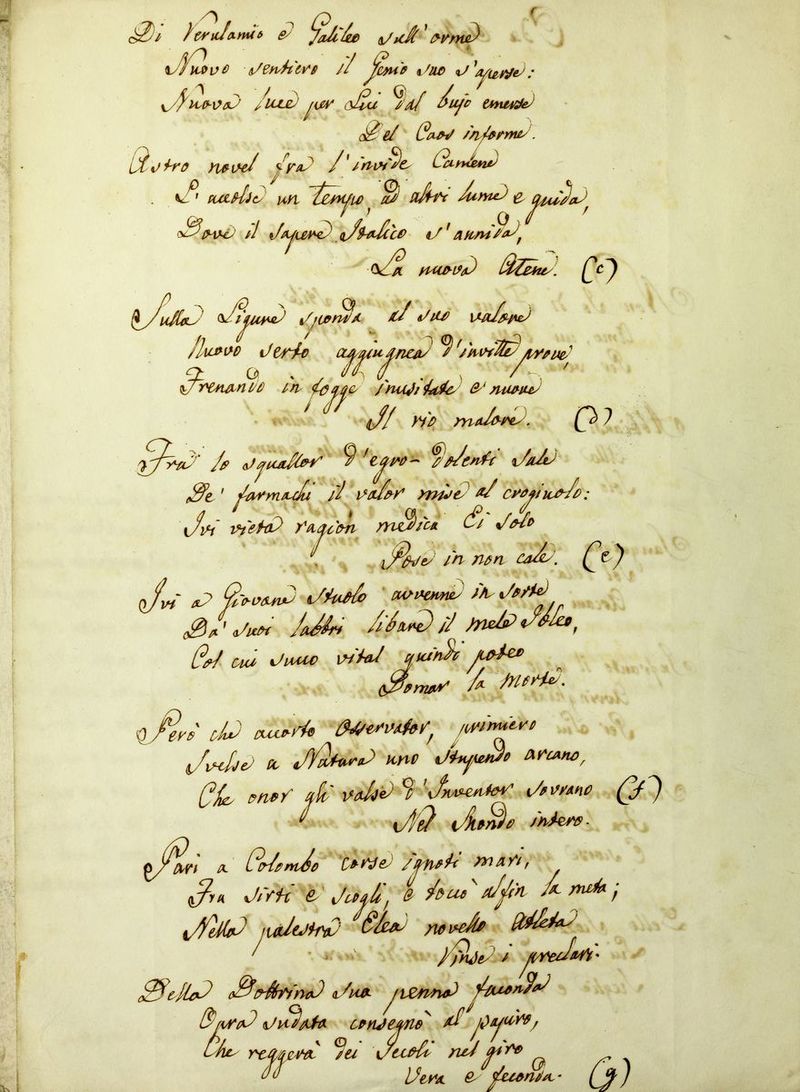 Di Verulamio e Galileo sull' orme
Nuovo sentiero il Genio suo s'aperse:
Nuova luce per Lui dal bujo emerse
Del Caos informe.
Astro novel fra l'invide Camene
L' accolse un tempo, ad altri lume e guida,
Dove il sapere Italico s' annida,
La nuova Atene. (c)
Sulla Ligure sponda al suo valore
Nuovo serto aggiugnea d'invitte prove,
Frenando in fogge inusitate e nuove
Il rio malore. (d)
Fra lo squallor d'egro-dolenti sale
De' farmachi il valor mise al crogiuolo:
Ivi vieta ragion medica Ei solo
Pose in non cale. (e)
Ivi a Giovane stuolo avvenne in sorte
Da' suoi labbri libare il mele Ibleo,
Col cui succo vital quindi poteo
Domar la Morte.
Però che accorto Osservator, primiero
Svelse a Natura uno stupendo arcano,
Che onor gli valse d'Inventor sovrano (f)
Nel Mondo intero.
Pari a Colombo corse ignoti mari,
Fra sirti e scogli, e toccò alfin la meta;
Nella palestra Elea novello Atleta
Vinse i preclari.
Della Dottrina sua penna faconda
Opra sudata consegnò al papiro,
Che reggerà dei secoli nel giro
Vera e feconda. (g)